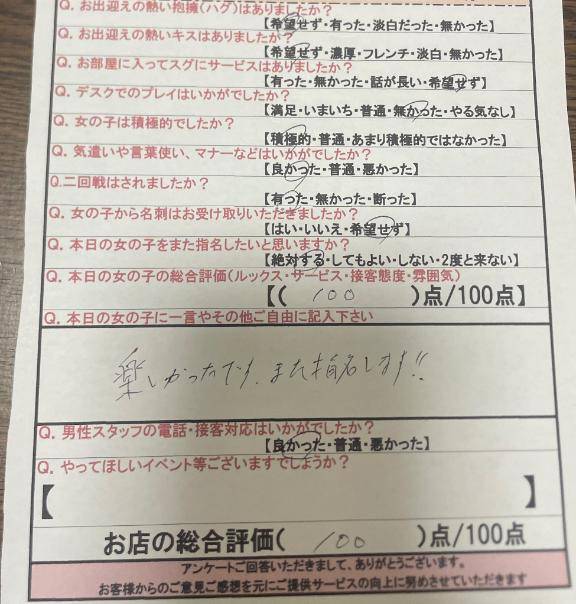 Q. お出迎えの熱い抱擁(ハグ)はありましたか?
【希望せず・有った・淡白だった・無かった】
Q. お出迎えの熱いキスはありましたか?
【希望せず・濃厚・フレンチ・淡白・無かった】
Q. お部屋に入ってスグにサービスはありましたか?
【有った・無かった・話が長い・希望せず】
Q. デスクでのプレイはいかがでしたか?
【満足・いまいち・普通・無かった・やる気なし】
Q. 女の子は積極的でしたか?
【積極的・普通・あまり積極的ではなかった】
Q. 気遣いや言葉使い、マナーなどはいかがでしたか?
【良かった・普通・悪かった】
Q.二回戦はされましたか?
【有った・無かった・断った】
Q. 女の子から名刺はお受け取りいただきましたか?
【はい・いいえ・希望せず】
Q. 本日の女の子をまた指名したいと思いますか?
【絶対する・してもよい・しない・2度と来ない】
Q. 本日の女の子の総合評価(ルックス・サービス・接客態度・雰囲気)
【( 100 )点/100点】
Q. 本日の女の子に一言やその他ご自由に記入下さい
楽しかったです、また指名します!!
Q. 男性スタッフの電話・接客対応はいかがでしたか?
【良かった・普通・悪かった】
Q. やってほしいイベント等ございますでしょうか?
【 】
お店の総合評価( 100 )点/100点
アンケートご回答いただきまして、ありがとうございます。
お客様からのご意見ご感想を元にご提供サービスの向上に努めさせていただきます